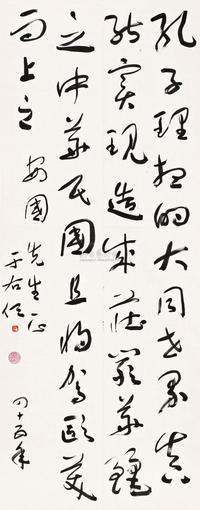 孔子理想的大同世界真
能實現造成莊嚴華麗
之中華民國且將駕歐美
而上之
安國先生正
于右任
四十五年